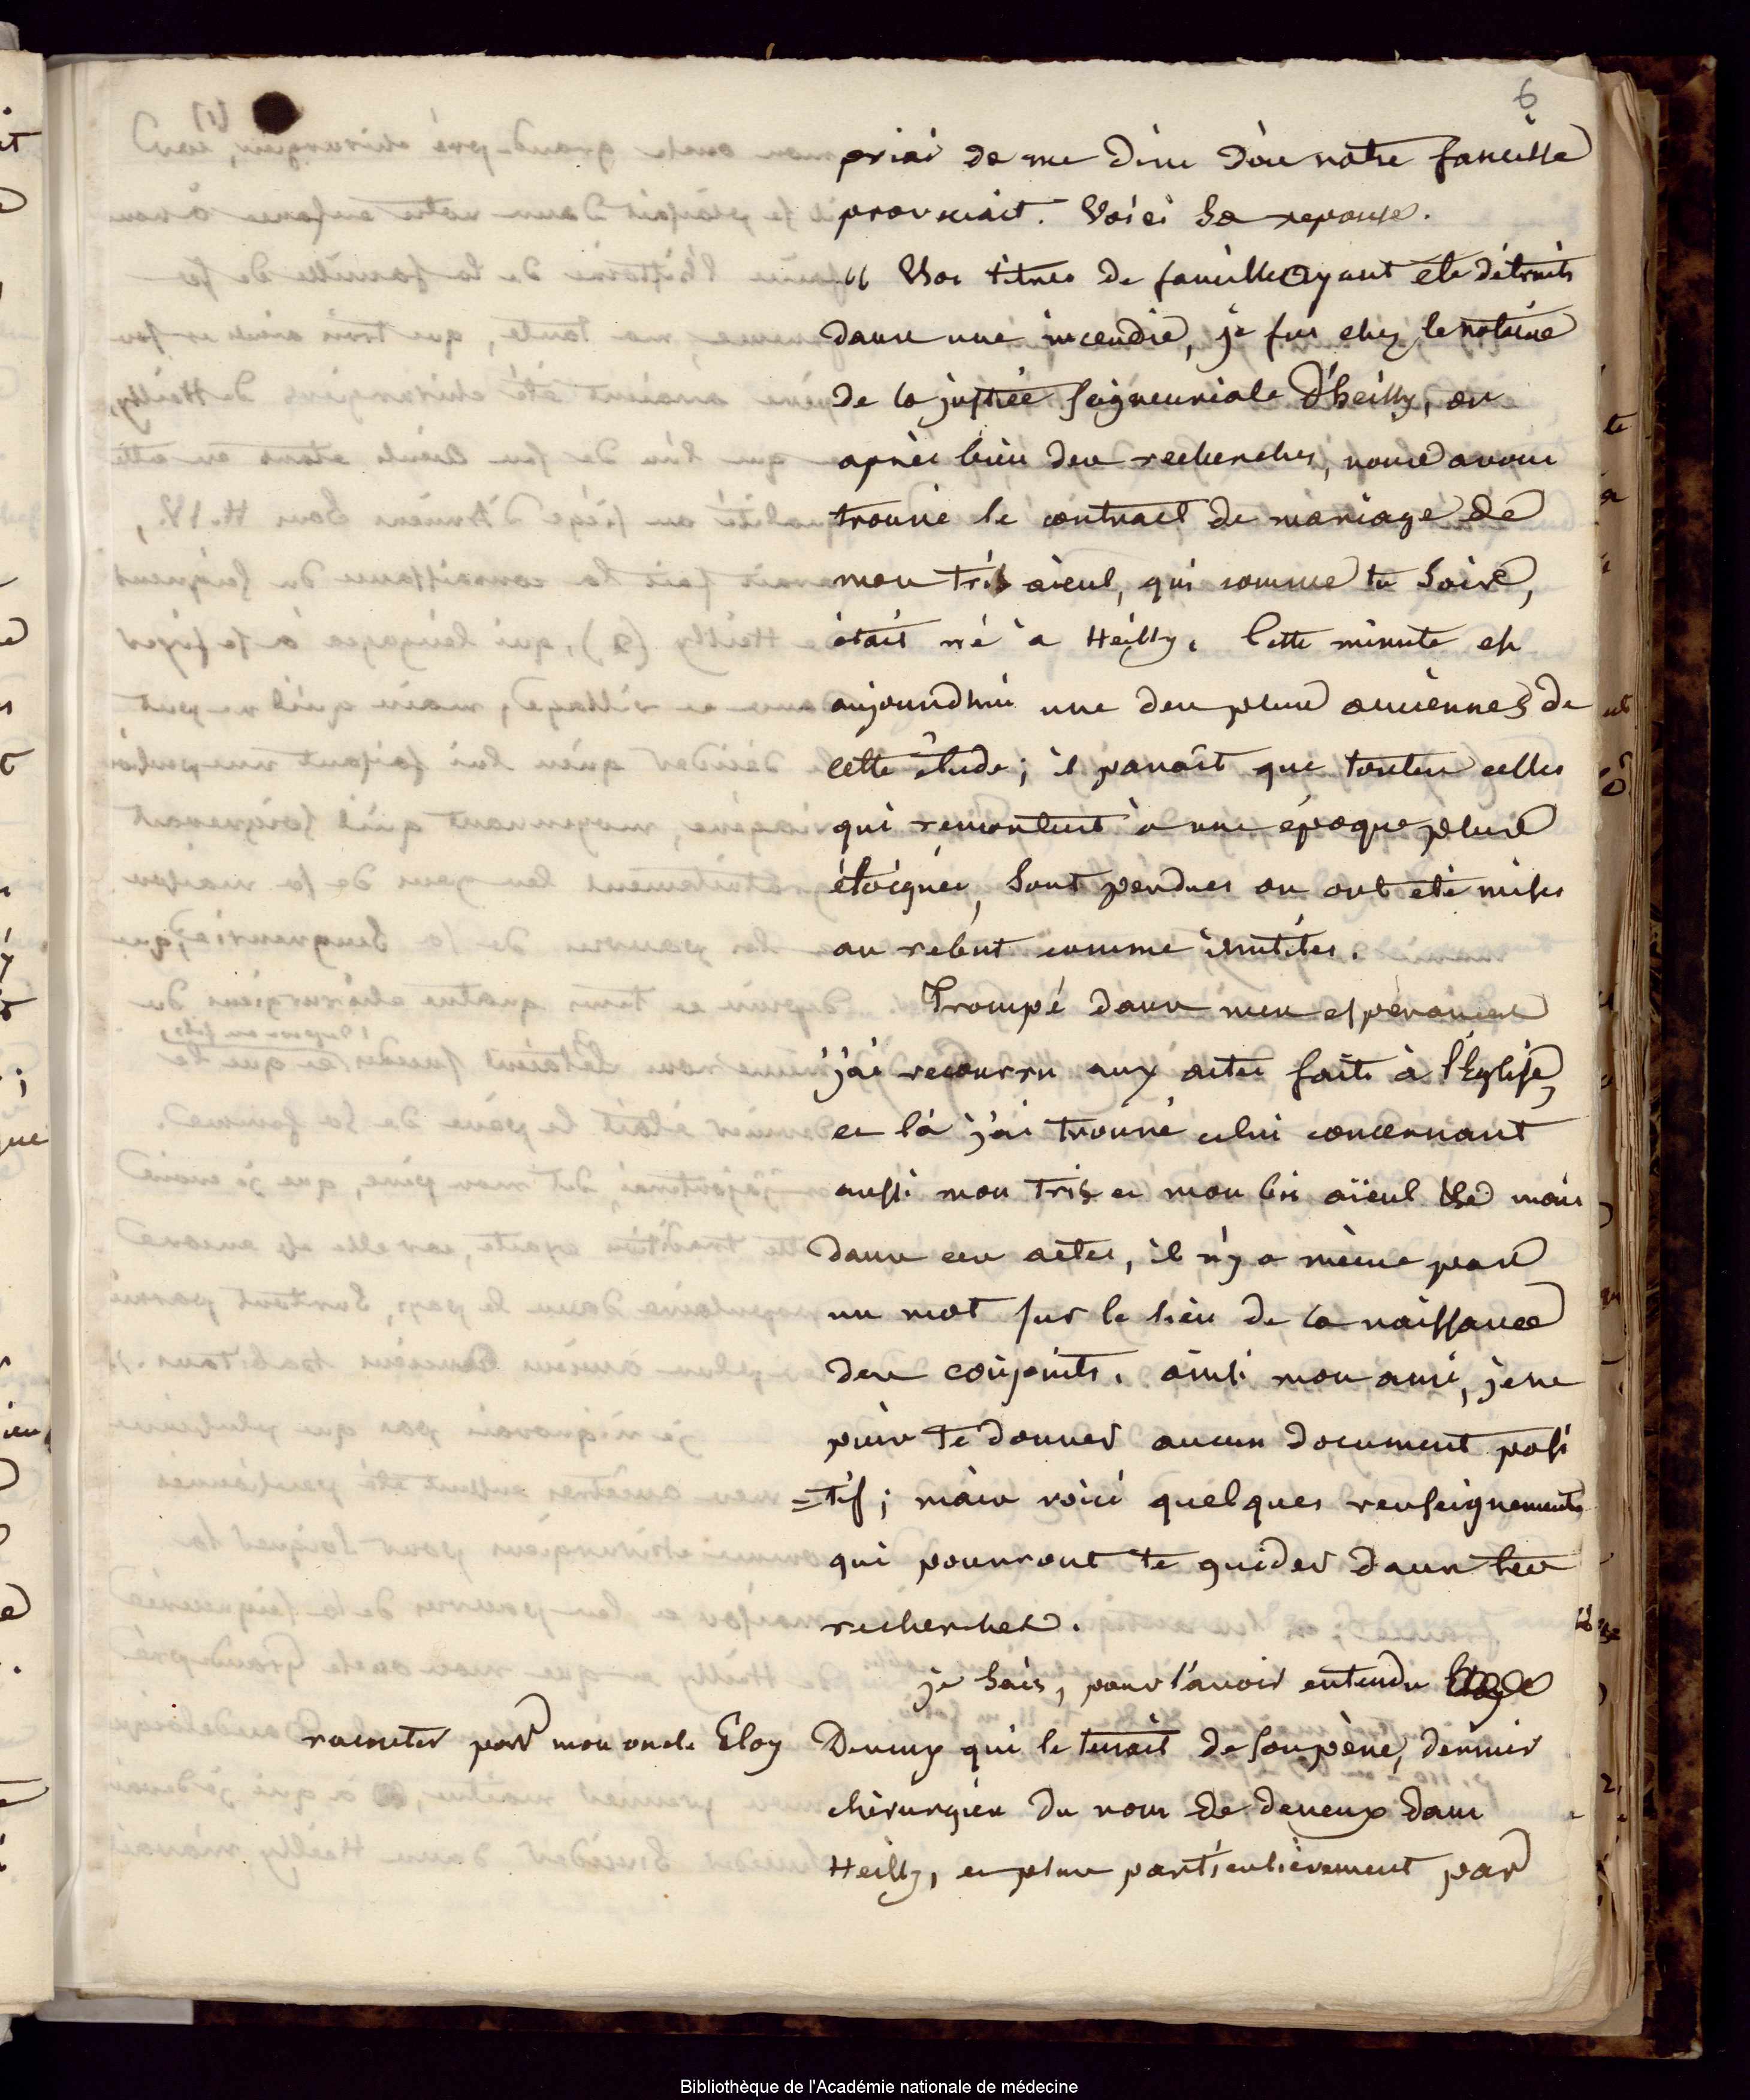 6
priai de me dire d'où notre famille
provenait. Voici sa reponse.
" Vos titres de famille ayant été détruits
dans une incendie, je fus chez le notaire
de la justice seigneuriale d'heilly, ou
après bien des recherches, nous avons
trouvé le contract de mariage de
mon trisaieul, qui comme tu sais,
était né à Heilly. Cette minute est
aujourdhui une des plus anciennes de
cette étude; il paroît que toutes celles
qui remontent à une époque plus
éloignée, sont perdues ou ont été mises
au rebut comme inutiles.
Trompé dans mes espérances
j'ai recourru aux actes faits à l'Eglise,
et là j'ai trouvé celui concernant
aussi mon tris et mon bis aïeul mais
dans ces actes, il n'y a même pas
un mot sur le lieu de la naissance
des conjoints. ainsi mon ami, je ne
puis te donner aucun document posi
=tif; mais voici quelques renseignements
qui pourront te guider dans tes
recherches.
je sais, pour l'avoir entendu
raconter par mon oncle Eloy Deneux qui le tenait de son père, dernier
chirurgien du nom de deneux dans
Heilly, et plus particulièrement par
Bibliothèque de l'Académie nationale de médecine